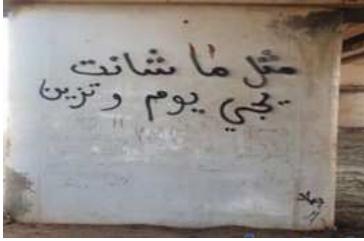 مثل ما شانت
تجي يوم وتزين